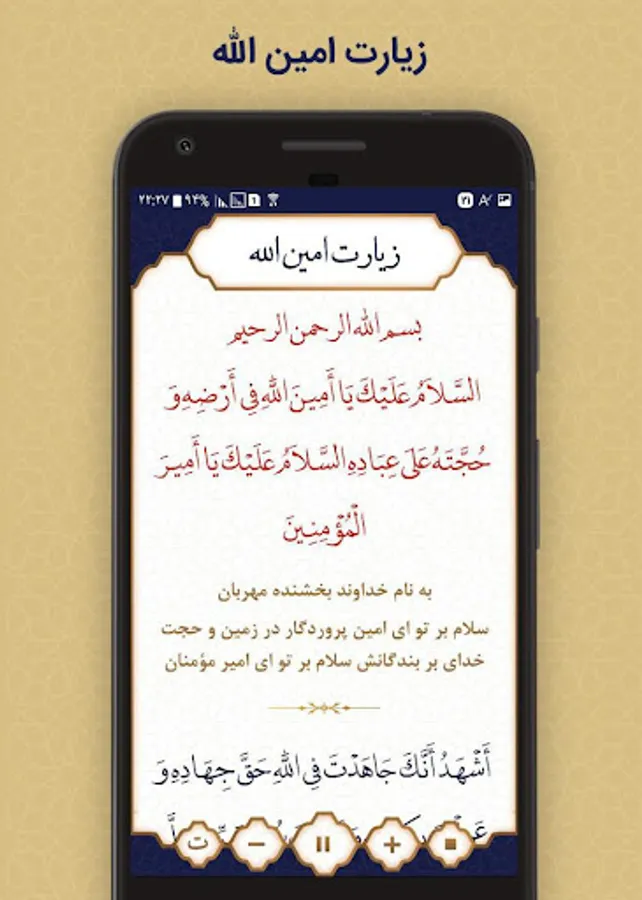 زیارت امین الله
۲۲:۲۷ ۹۴%
زیارت امین الله
بسم الله الرحمن الرحیم
السَّلَامُ عَلَيْكَ يَا أَمِينَ اللهِ فِي أَرْضِهِ وَ
حُجَّتَهُ عَلَى عِبَادِهِ السَّلَامُ عَلَيْكَ يَا أَمِيرَ
الْمُؤْمِنِينَ
به نام خداوند بخشنده مهربان
سلام بر تو ای امین پروردگار در زمین و حجت
خدای بر بندگانش سلام بر تو ای امیر مؤمنان
أَشْهَدُ أَنَّكَ جَاهَدْتَ فِي اللهِ حَقَّ جِهَادِهِ وَ
ت